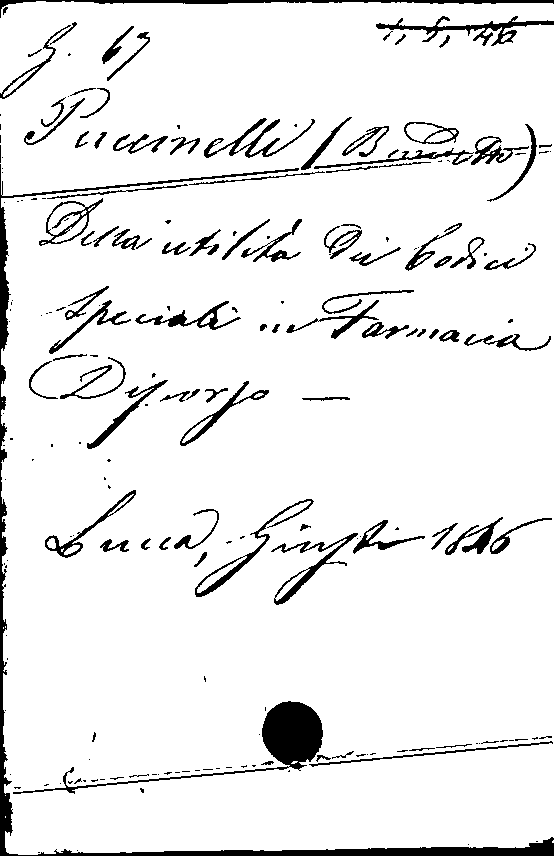 G. 67
1, 5, 46
Puccinelli (Benedetto)
Della utilità dei Codici
speciali in Farmacia
Discorso —
Lucca, Giusti 1846